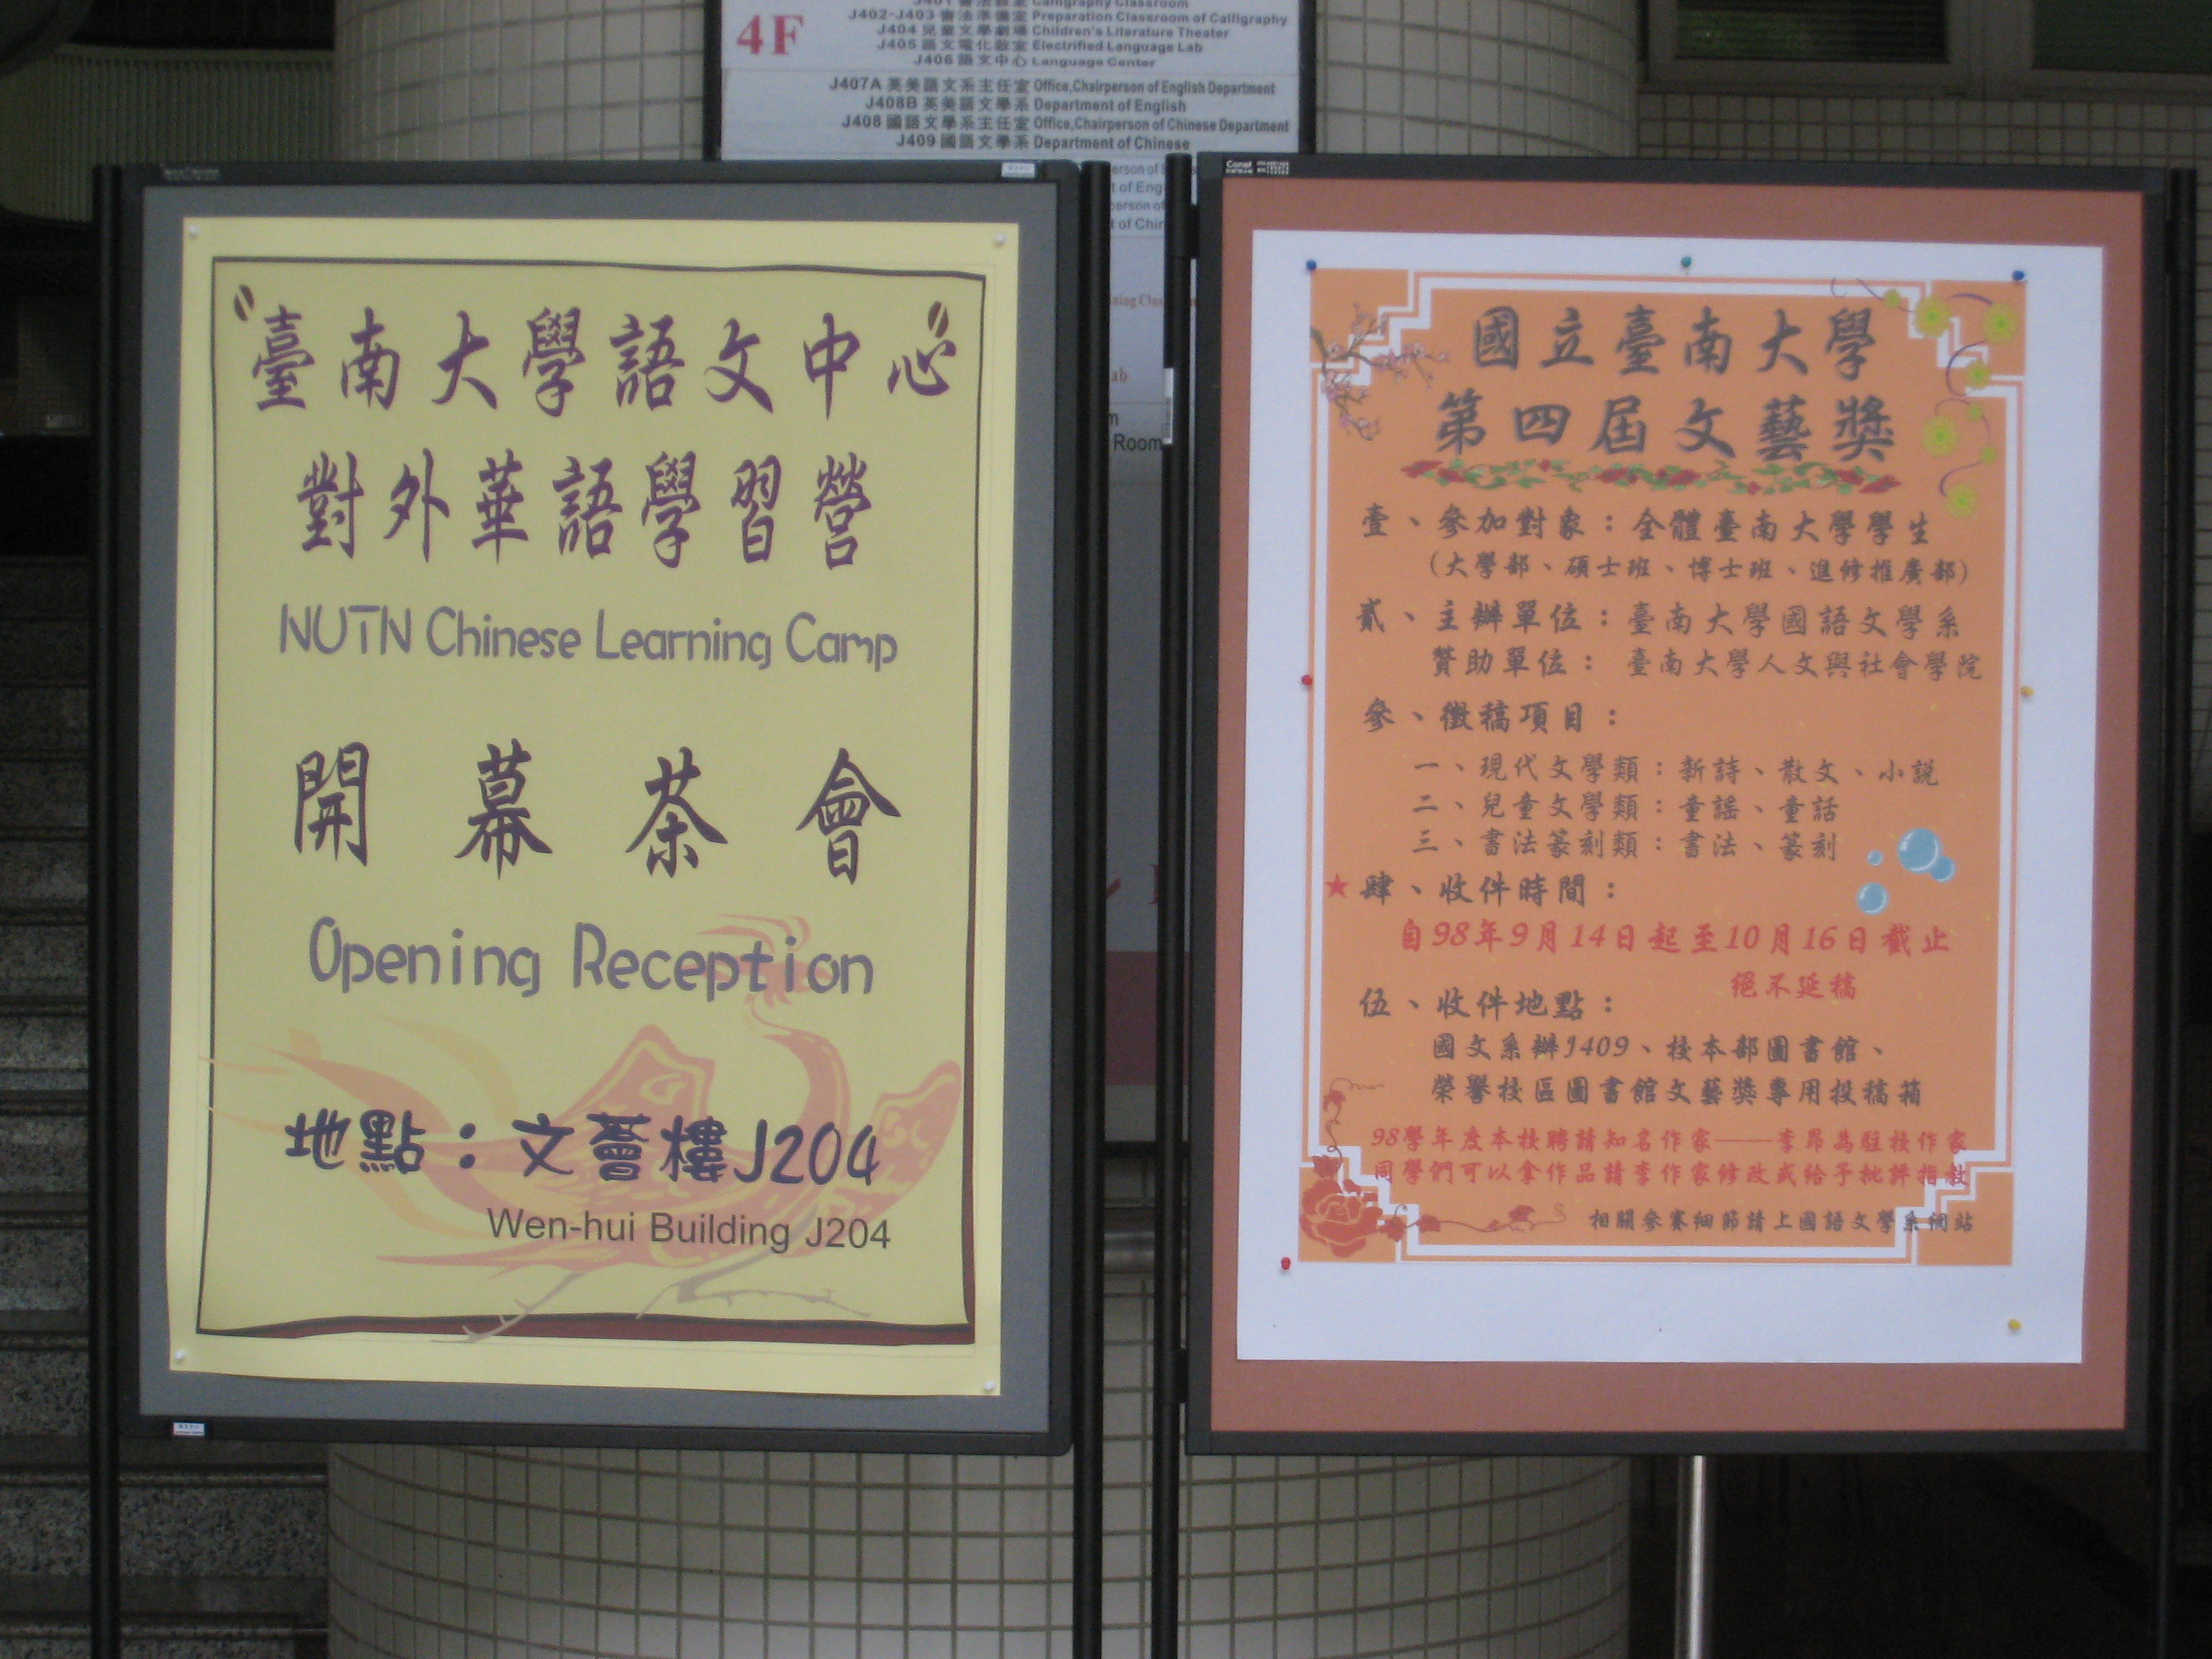 4F
J401 書法教室 Calligraphy Classroom
J402-J403 書法準備室 Preparation Classroom of Calligraphy
J404 兒童文學劇場 Children's Literature Theater
J405 語文電化教室 Electrified Language Lab
J406 語文中心 Language Center
J407A 英美語文系主任室 Office,Chairperson of English Department
J408B 英美語文學系 Department of English
J408 國語文學系主任室 Office,Chairperson of Chinese Department
J409 國語文學系 Department of Chinese
臺南大學語文中心
對外華語學習營
NUTN Chinese Learning Camp
開幕茶會
Opening Reception
地點：文薈樓J204
Wen-hui Building J204
Room
國立臺南大學
第四屆文藝獎
壹、參加對象：全體臺南大學學生
(大學部、碩士班、博士班、進修推廣部)
貳、主辦單位：臺南大學國語文學系
贊助單位： 臺南大學人文與社會學院
參、徵稿項目：
一、現代文學類：新詩、散文、小說
二、兒童文學類：童謠、童話
三、書法篆刻類：書法、篆刻
★肆、收件時間：
自98年9月14日起至10月16日截止
絕不延稿
伍、收件地點：
國文系辦J409、校本部圖書館、
榮譽校區圖書館文藝獎專用投稿箱
98學年度本校聘請知名作家——李昂為駐校作家
同學們可以拿作品請李作家修改或給予批評指教
相關參賽細節請上國語文學系網站